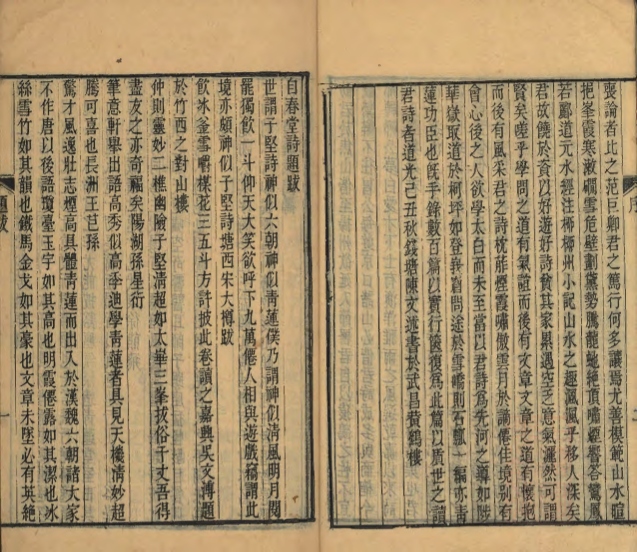 喪論者比之范巨卿君之篤行何多讓焉尤善模範山水暄
挹峯霞寒漱礀雪危壁劃黛勢騰龍虵絶頂嘯煙響答鸞鳳
若酈道元水經注柳柳州小記山水之趣渢渢乎移人深矣
君故饒於資以好遊好詩貲其家累遇空乏意氣灑然可謂
賢矣嗟乎學問之道有氣誼而後有文章文章之道有懷抱
而後有風采君之詩枕葄煙霞嘯傲雲月於謫僊佳境別有
會心後之人欲學太白而未至當以君詩爲先河之導如陟
華嶽取道於柯坪如登我眉問途於雪嶠則石瓢一編亦青
蓮功臣也旣手錄數百篇以實行篋復爲此篇以質世之讀
君詩者道光己丑秋錢塘陳文述書於武昌黃鶴樓
序
自春堂詩題跋
世謂子堅詩神似六朝神似靑蓮僕乃謂神似淸風明月閱
罷獨飲一斗仰天大笑欲呼下九萬僊人相與遊戲竊謂此
境亦頗神似子堅詩塘西宋大樽跋
飲冰釜雪嚼樣花三五斗方許披此卷讀之嘉興吳文溥題
於竹西之對山樓
仲則靈妙二樵幽險子堅淸超如太華三峯拔俗千丈吾得
盡友之亦奇福矣陽湖孫星衍
筆意軒舉出語高秀似高季迪學靑蓮者具見天機淸妙超
騰可喜也長洲王芑孫
驚才風逸壯志煙高具體靑蓮而出入於漢魏六朝諸大家
不作唐以後語瓊臺玉宇如其高也明霞僊露如其潔也冰
絲雪竹如其韻也鐵馬金戈如其豪也文章未墜必有英絶
題跋
一